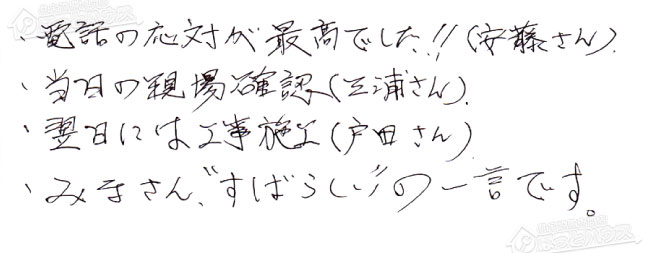 ・電話の応対が最高でした!!(安藤さん)
・当日の現場確認(三浦さん)
・翌日には工事施工(戸田さん)
・みなさん、"すばらしい"の一言です。